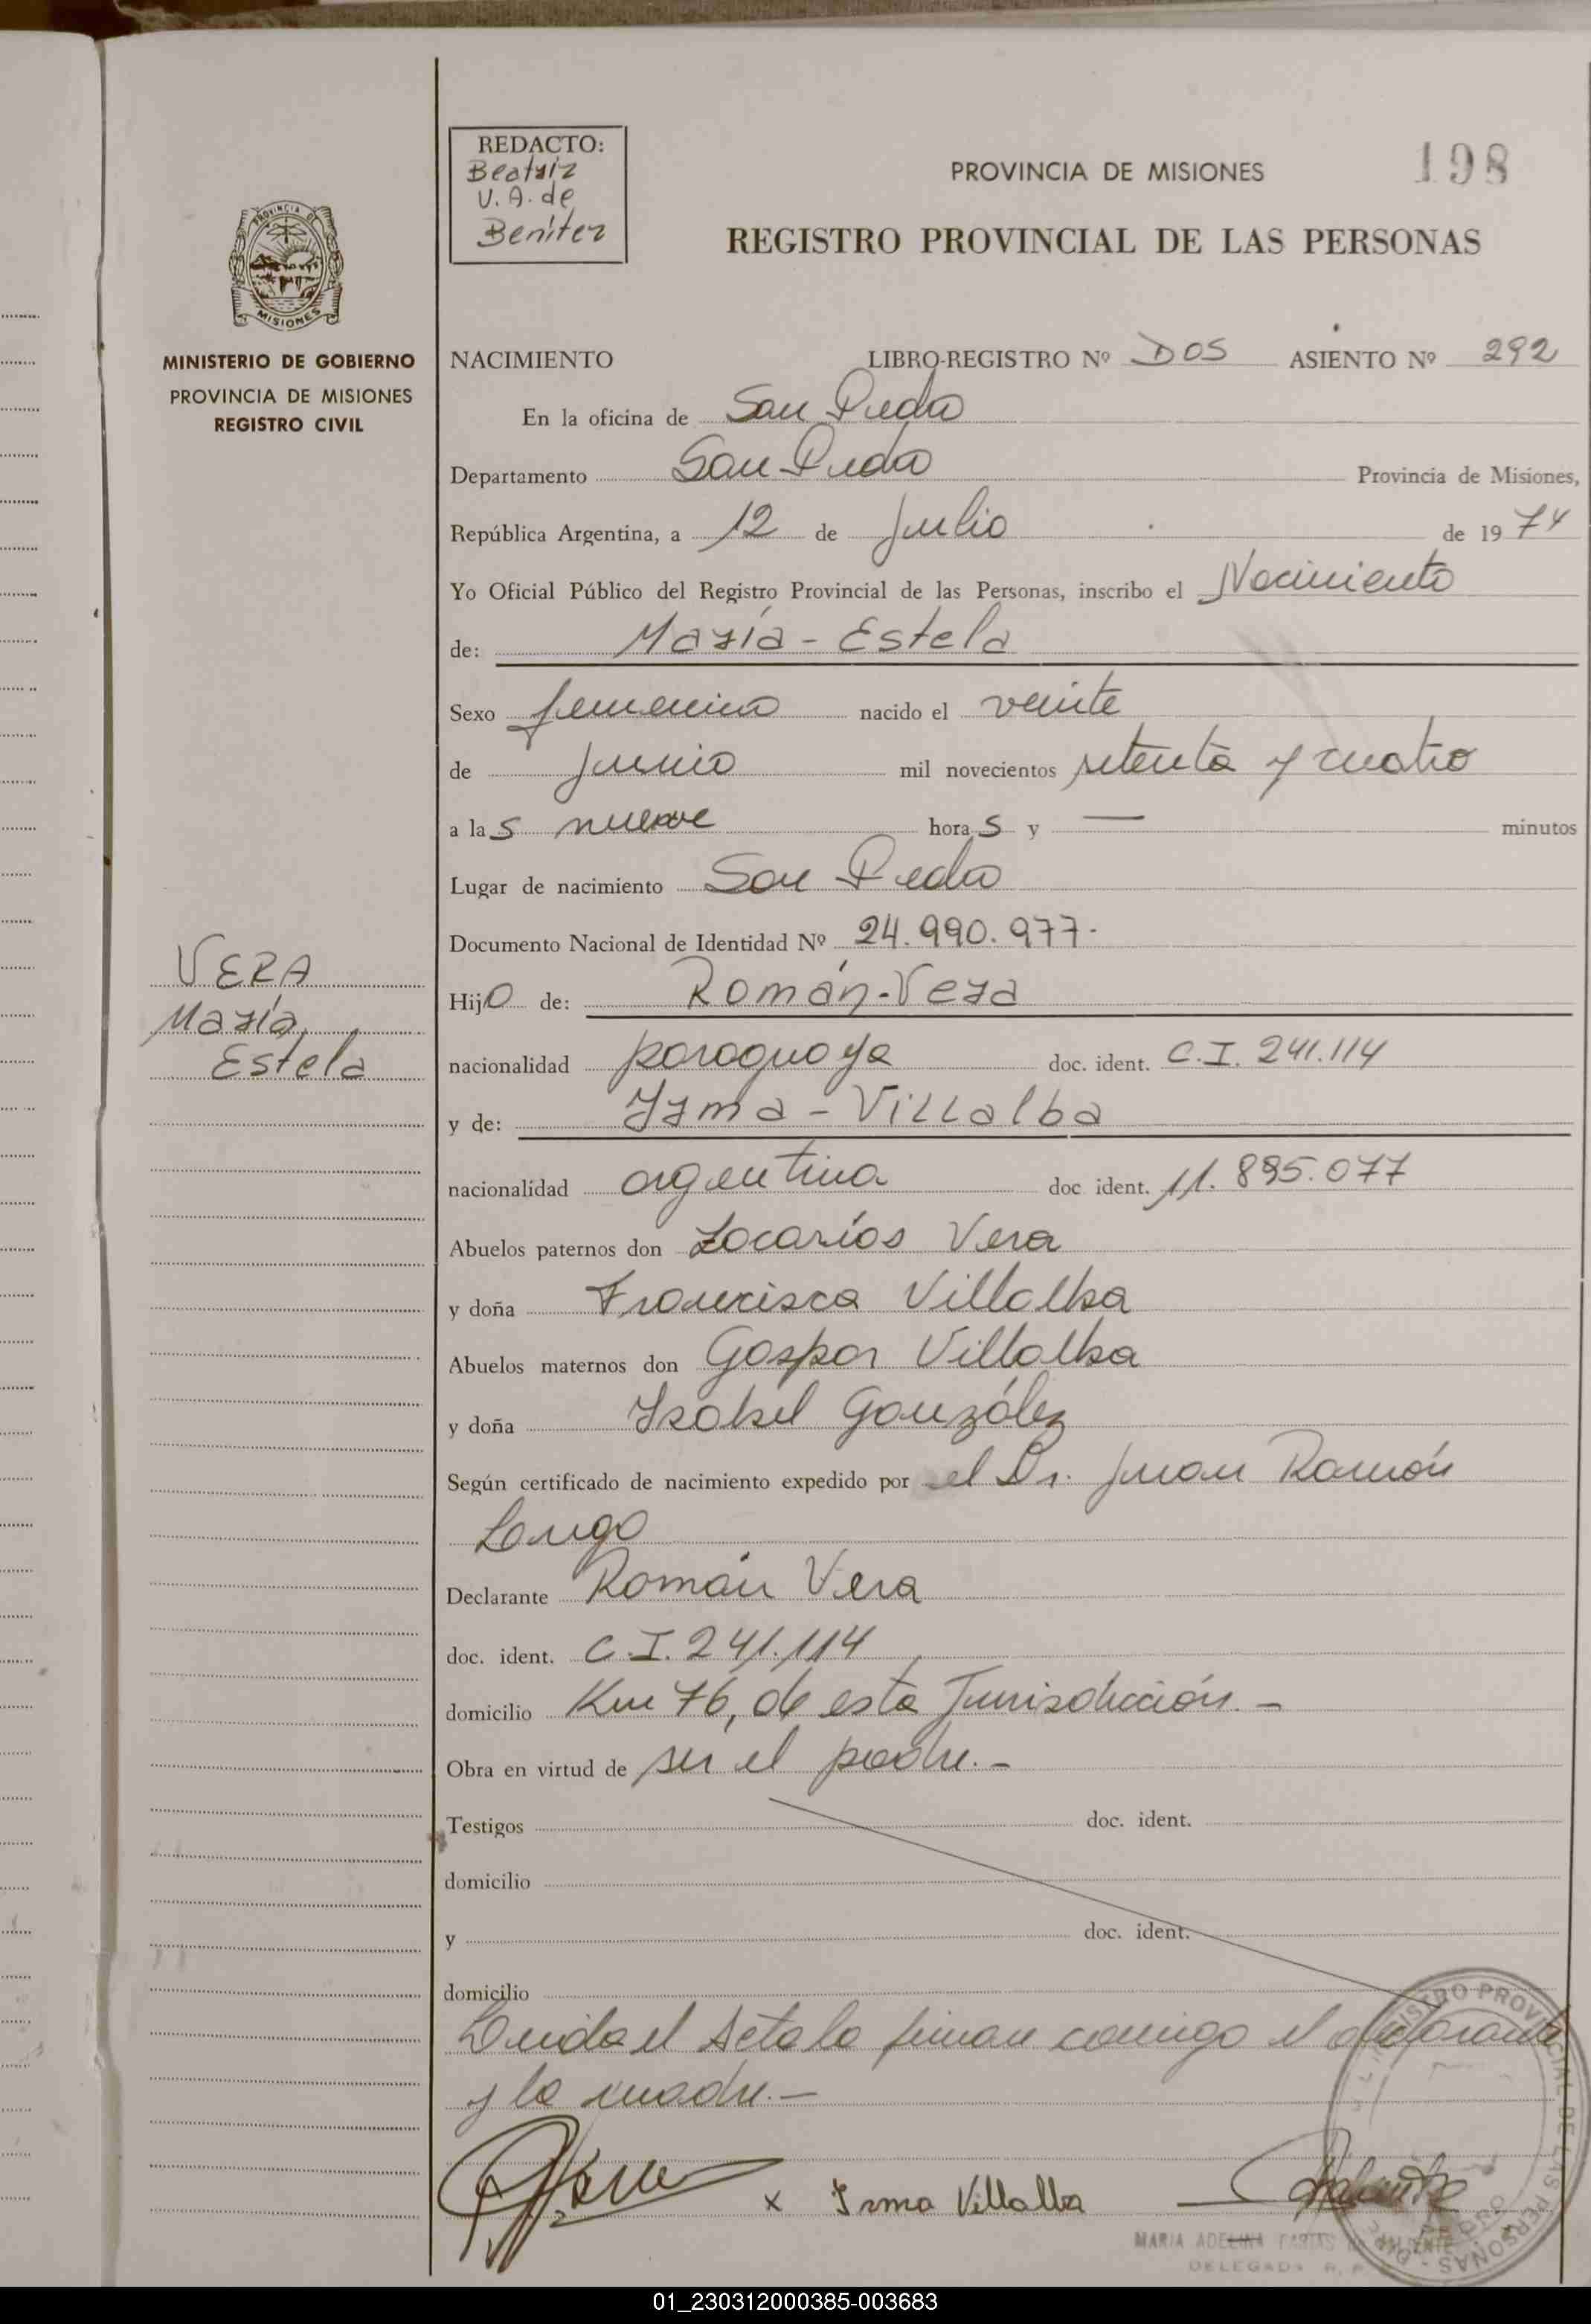 REDACTO:
Beatriz
V. A. de
Benítez
PROVINCIA DE MISIONES
198
REGISTRO PROVINCIAL DE LAS PERSONAS
PROVINCIA DE
MISIONES
MINISTERIO DE GOBIERNO
PROVINCIA DE MISIONES
REGISTRO CIVIL
NACIMIENTO LIBRO-REGISTRO Nº DOS ASIENTO Nº 292
En la oficina de San Pedro
Departamento San Pedro Provincia de Misiones,
República Argentina, a 12 de Julio de 1974
Yo Oficial Público del Registro Provincial de las Personas, inscribo el Nacimiento
de: María - Estela
Sexo femenino nacido el veinte
de Junio mil novecientos setenta y cuatro
a las nueve horas y — minutos
Lugar de nacimiento San Pedro
Documento Nacional de Identidad Nº 24.990.977.
VERA
María
Estela
Hijo de: Román - Vera
nacionalidad paraguaya doc. ident. C.I. 241.114
y de: Irma - Villalba
nacionalidad argentina doc ident. 11.895.077
Abuelos paternos don Zocaríos Vera
y doña Francisca Villalba
Abuelos maternos don Gaspar Villalba
y doña Isabel González
Según certificado de nacimiento expedido por el Dr. Juan Ramón
Longo
Declarante Román Vera
doc. ident. C.I. 241.114
domicilio Km 76, de esta Jurisdicción. -
Obra en virtud de ser el padre. -
Testigos doc. ident.
domicilio
y doc. ident.
domicilio
Leida el Acta la firman conmigo el declarante
y la madre. —
x Irma Villalba
MARIA ADELINA
DELEGADA
REGISTRO PROVINCIAL DE LAS PERSONAS
01_230312000385-003683